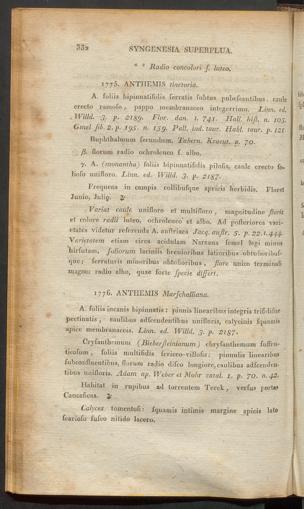 332 SYNGENESIA SUPERFLUA.
* * Radio concolori s. luteo.
1775. ANTHEMIS tinctoria.
A. foliis bipinnatifidis serratis subtus pubescentibus, caule
erecto ramoso, pappo membranaceo integerrimo. Linn. ed.
Willd. 3. p. 2189. Flor. dan. t. 741. Hall. hist. n. 105.
Gmel sib. 2. p. 195. n. 159. Pall. ind. taur. Habl. taur. p. 121
Buphthalmum secundum. Tabern. Kraeut. p. 70.
β. florum radio ochroleuco s. albo.
γ. A. (monantha) foliis bipinnatifidis pilosis, caule erecto fo-
lioso unifloro. Linn. ed. Willd. 3. p. 2187.
Frequens in campis collibusque apricis herbidis. Floret
Junio, Julio. ♃
Variat caule unifloro et multifloro, magnitudine floris
et colore radii luteo, ochroleuco et albo. Ad posteriorem vari-
etatem videtur referenda A. austriaca Jacq. austr. 5. p. 22. t. 444
Varietatem etiam circa acidulam Narzana semel legi minus
hirsutam, foliorum laciniis brevioribus latioribus obtusioribus-
que; serraturis minoribus obtusioribus, flore unico terminali
magno radio albo, quae forte specie differt.
1776. ANTHEMIS Marschalliana.
A. foliis incanis bipinnatis: pinnis linearibus integris trifidisue
pectinatis, caulibus adscendentibus unifloris, calycinis squamis
apice membranaceis. Linn. ed. Willd. 3. p. 2187.
Crysanthemum (Biebersteinianum) chrysanthemum suffru-
ticosum, foliis multifidis sericeo-villosis: pinnulis linearibus
subconfluentibus, florum radio disco longiore, caulibus adscenden-
tibus unifloris. Adam ap. Weber et Mohr catal. 1. p. 70. n. 42.
Habitat in rupibus ad torrentem Terek, versus portas
Caucasicas. ♃
Calyces tomentosi: squamis intimis margine apicis lato
scarioso fusco nitido lacero.